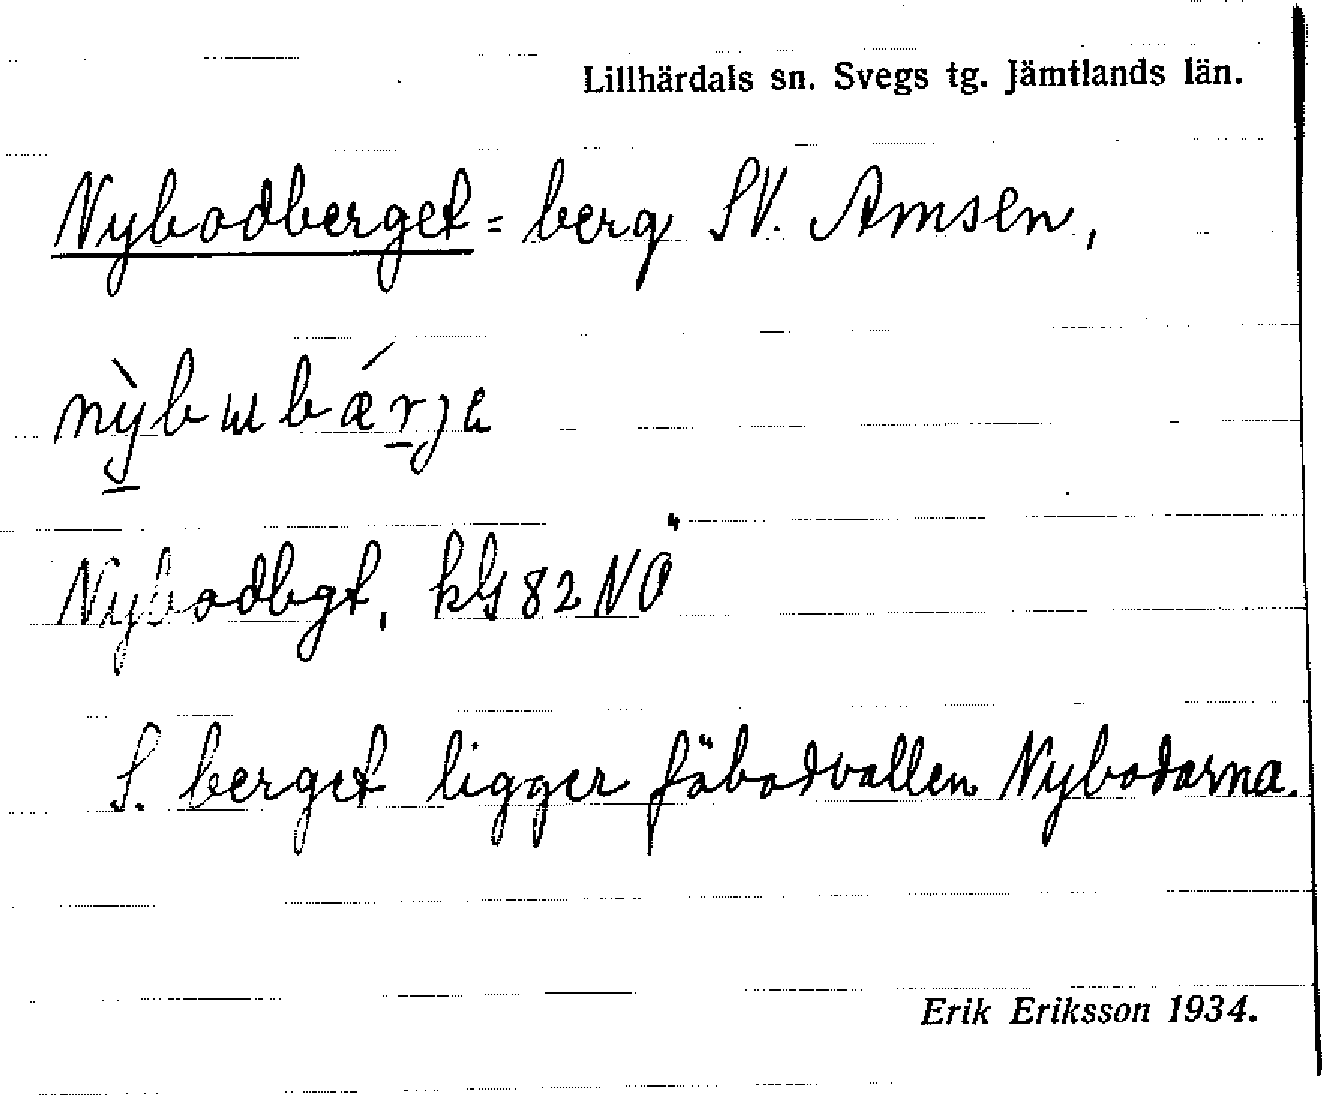 Lillhärdals sn. Svegs tg. Jämtlands län.
Nybodberget = berg SV. Amsen,
nỳ̲bɯbǽr̲ȷe
Nybodbgt, kG 82 NO"
S. berget ligger fäbodvallen Nybodarna.
Erik Eriksson 1934.